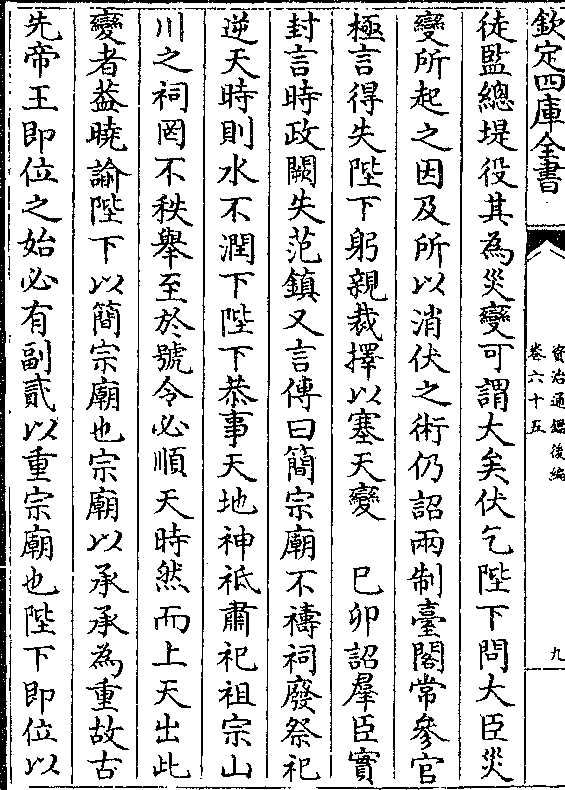 欽定四庫全書
資治通鑑後編
卷六十五
九
徒監總堤役其為災變可謂大矣伏乞陛下問大臣災
變所起之因及所以消伏之術仍詔兩制臺閣常參官
極言得失陛下躬親裁擇以塞天變　巳卯詔羣臣實
封言時政闕失范鎮又言傳曰簡宗廟不禱祠廢祭祀
逆天時則水不潤下陛下恭事天地神祗肅祀祖宗山
川之祠罔不秩舉至於號令必順天時然而上天出此
變者葢曉諭陛下以簡宗廟也宗廟以承承為重故古
先帝王即位之始必有副貳以重宗廟也陛下即位以